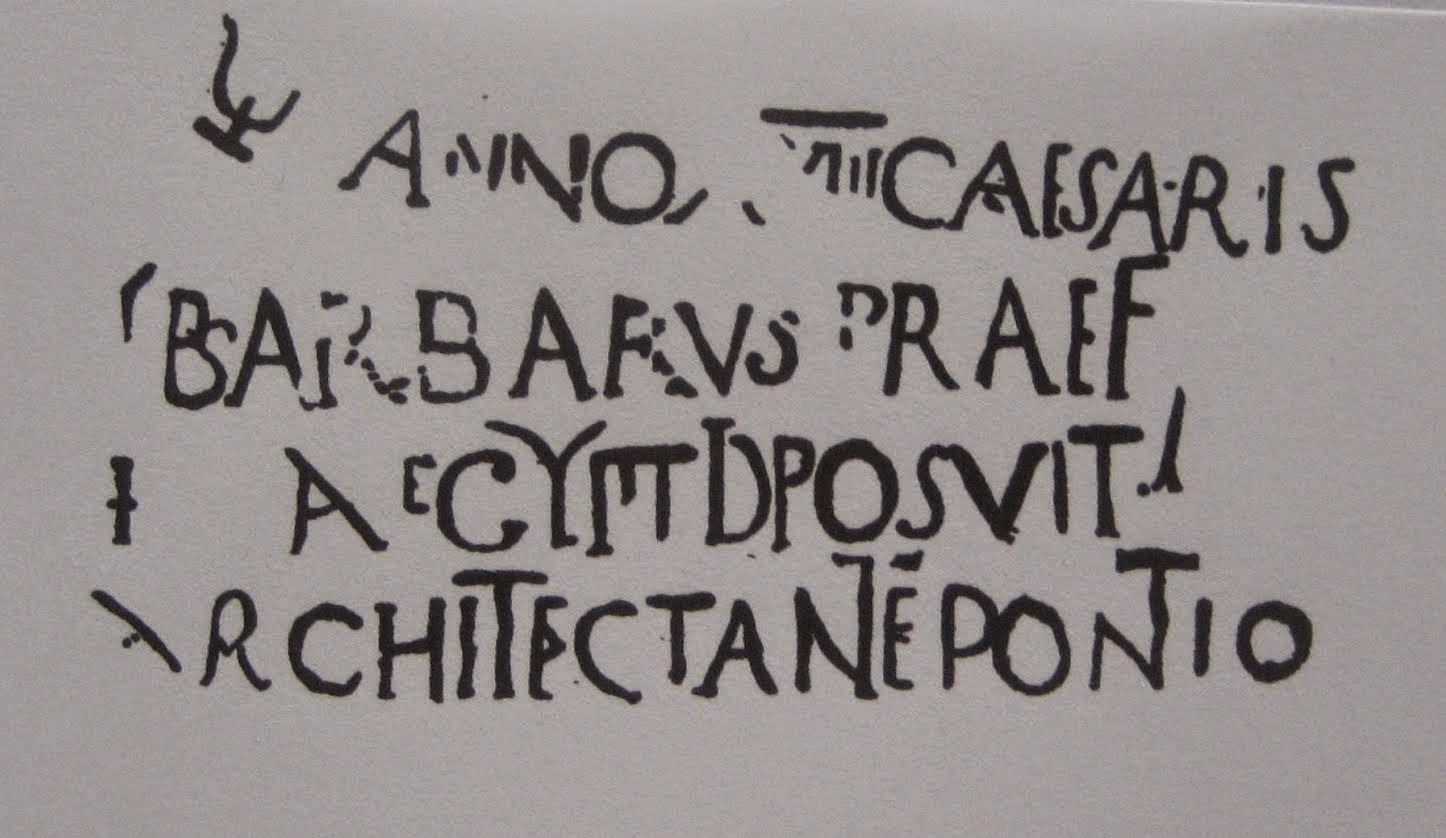 ANNO VIII CAESARIS
BARBARVS PRAEF
AEGYPTI POSVIT
ARCHITECTANTE PONTIO